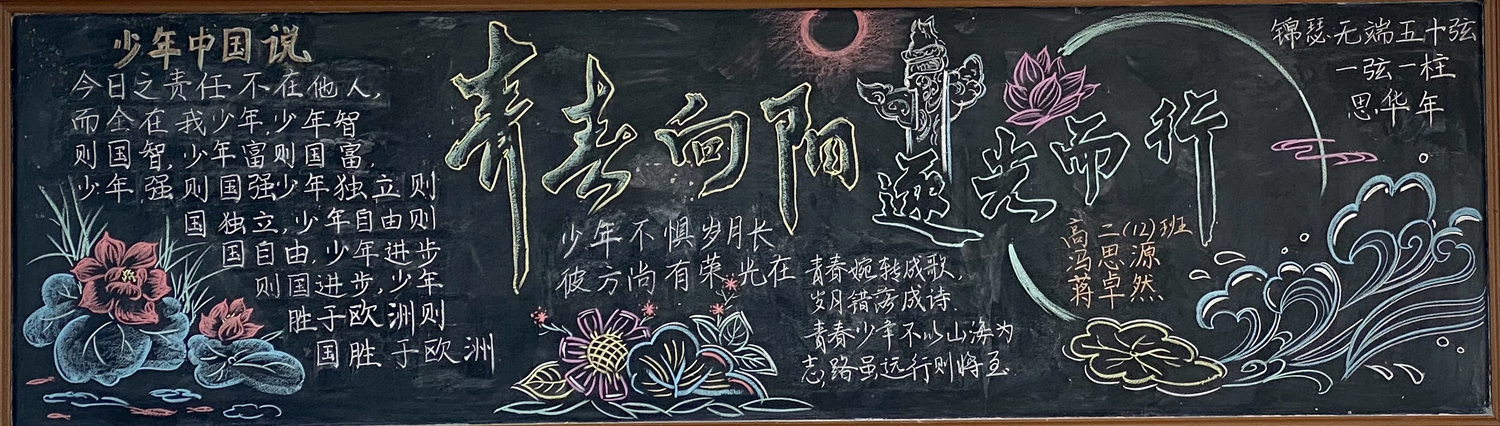 少年中国说
今日之责任不在他人,
而全在我少年,少年智
则国智,少年富则国富,
少年强则国强少年独立则
国独立,少年自由则
国自由,少年进步
则国进步,少年
胜于欧洲则
国胜于欧洲
青春向阳
逐光而行
少年不惧岁月长
彼方尚有荣光在
青春婉转成歌,
岁月错落成诗.
青春少年不以山海为
志,路虽远行则将至
高二(12)班
冯思源
蒋卓然
锦瑟无端五十弦
一弦一柱
思华年